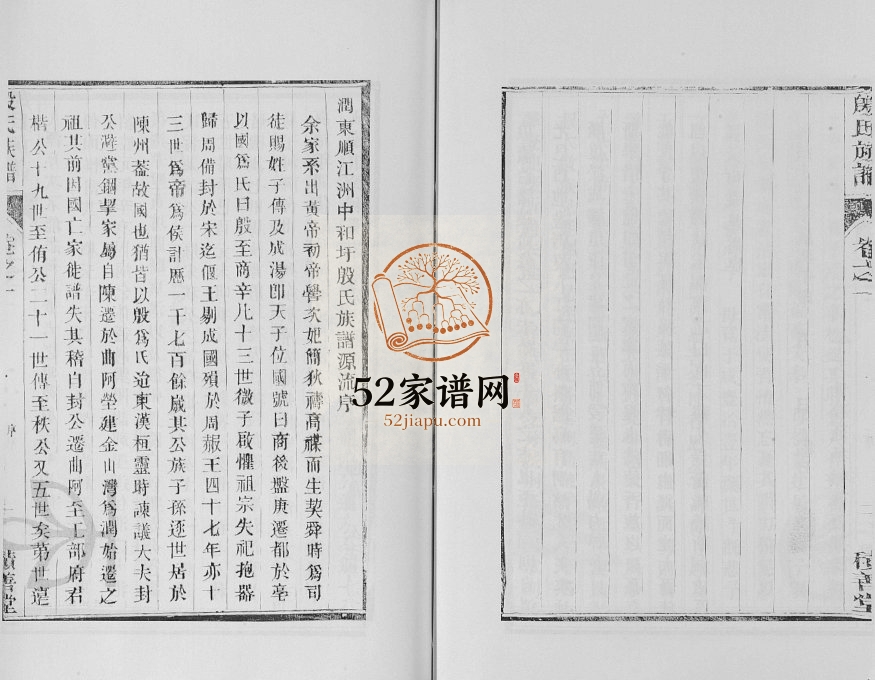 潤東順江洲中和圩殷氏族譜源流序
余家系出黃帝初帝嚳次妃簡狄禱高禖而生契舜時爲司
徒賜姓子傳及成湯卽天子位國號曰商後盤庚遷都於亳
以國爲氏曰殷至商辛凡十三世微子啟懼祖宗失祀抱器
歸周備封於宋迄偃王剔成國殞於周赧王四十七年亦十
三世爲帝爲侯計歷一千七百餘歲其公族子孫逐世居於
陳州葢故國也猶皆以殷爲氏迨東漢桓靈時諫議大夫封
公避黨錮挈家屬自陳遷於曲阿塋建金山灣爲潤始遷之
祖其前因國亡家徙譜失其稽自封公遷曲阿至工部府君
楷公十九世至侑公二十一世傳至秩公又五世矣第世遠
殷氏族譜
卷之一
序
一
積善堂
52家谱网
52jiapu.com
殷氏族譜
卷之一
一
積善堂